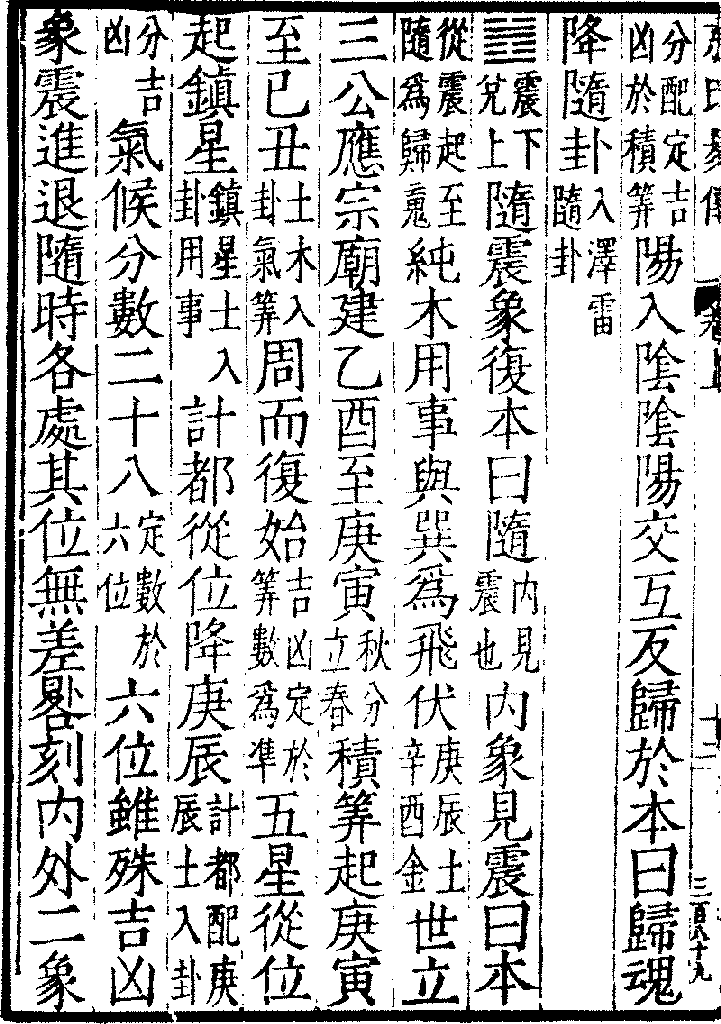 分配定吉凶於積筭陽入陰陰陽交互反歸於本曰歸魂
降隨卦入澤雷隨卦
䷐震下兌上隨震象復本曰隨內見震也內象見震曰本
從震起至隨爲歸䰟純木用事與巽爲飛伏庚辰土辛酉金世立
三公應宗廟建乙酉至庚寅秋分立春積筭起庚寅
至己丑土木入卦氣筭周而復始吉凶定於筭數爲準五星從位
起鎮星鎮星土入卦用事計都從位降庚辰計都配庚辰土入卦
分吉凶氣候分數二十八定數於六位六位雖殊吉凶
象震進退隨時各處其位無差晷刻內外二象